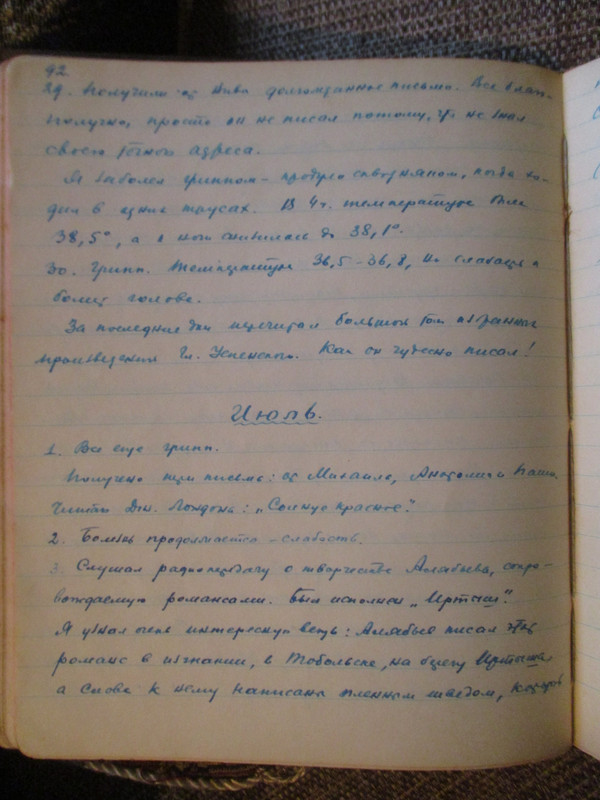 92
29. Получили от Нины долгожданное письмо. Все благо-
получно, просто он не писал потому, что не знал
своего точного адреса.
Я заболел гриппом - продуло сквозняком, когда хо-
дил в одних трусах. В 4 ч. температура была
38,5°, а к ночи снизилась до 38,1°.
30. Грипп. Температура 36,5 - 36,8, но слабость и
болит голова.
За последние дни перечитал большой том избранных
произведений Гл. Успенского. Как он чудесно писал!
Июль.
1. Все еще грипп.
Получено три письма: от Михаила, Анатолия и Паши.
Читаю Дж. Лондона: „Солнце красное".
2. Болезнь продолжается - слабость.
3. Слушал радиопередачу о творчестве Алябьева, сопро-
вождаемую романсами. Был исполнен „Иртыш".
Я узнал очень интересную вещь: Алябьев писал этот
романс в изгнании, в Тобольске, на берегу Иртыша
а слова к нему написаны пленным шведом, который